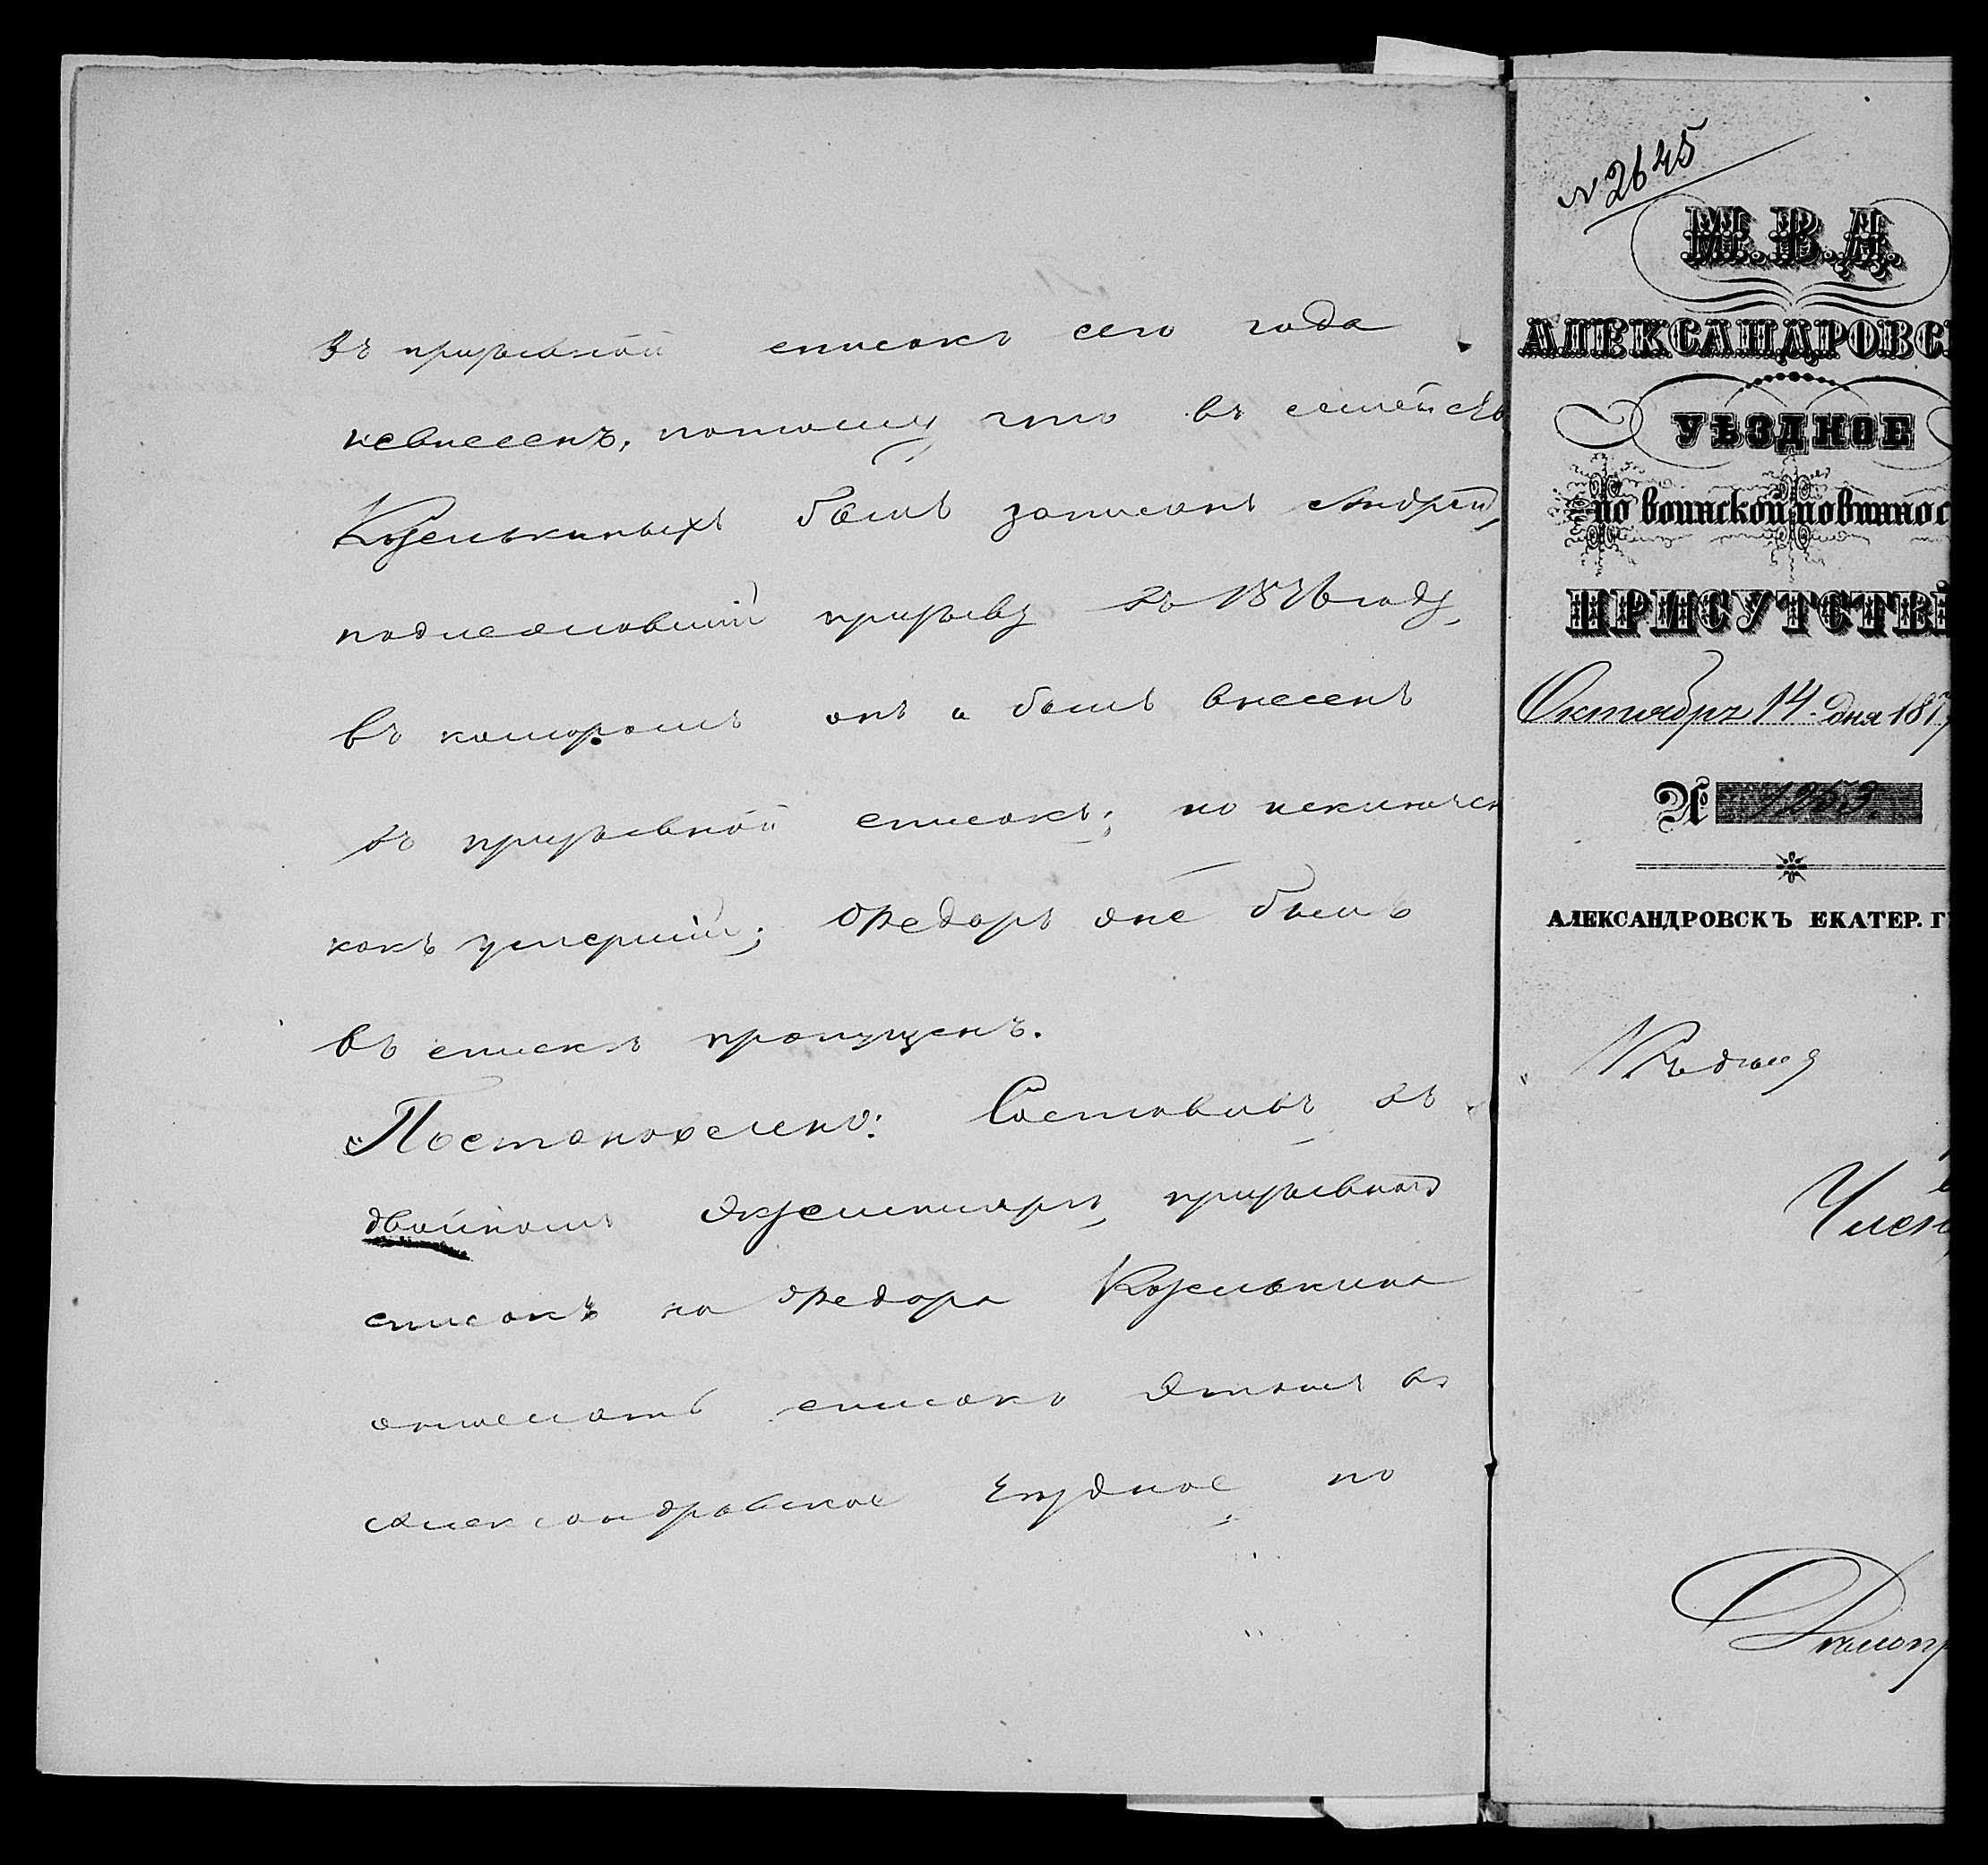 въ призывной списокъ сего года
невнесенъ, потому что въ семействѣ
Козелькиныхъ былъ записанъ Андрей,
подлежавшій призыву въ 1876 году,
въ которомъ онъ и былъ внесенъ
въ призывной списокъ; но исключен
какъ умершій; Федоръ же былъ
въ спискѣ пропущенъ.
Постановлено: Составивъ въ
двойномъ экземплярѣ призывной
списокъ на Федора Козелькина
списокъ этотъ въ
Александровское Уездное по
№ 2645
М. В. Д.
АЛЕКСАНДРОВС
УѢЗДНОЕ
по воинской повиннос
ПРИСУТСТВІ
Октября 14 дня 187
№ 1253
АЛЕКСАНДРОВСКЪ ЕКАТЕР. Г
Член
Дѣлопр